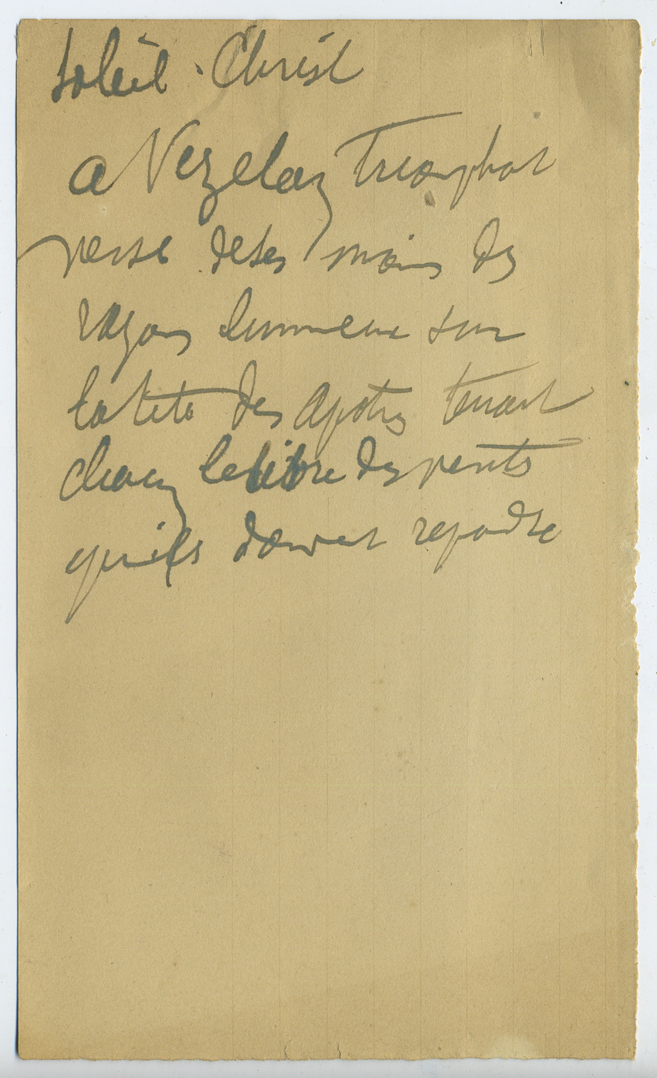 Soleil - Christ
a Vezelay Triomphant
verse de ses mains des
rayons lumineux sur
la tete des apotres tenant
chacun le livre des
qu'ils doivent repandre